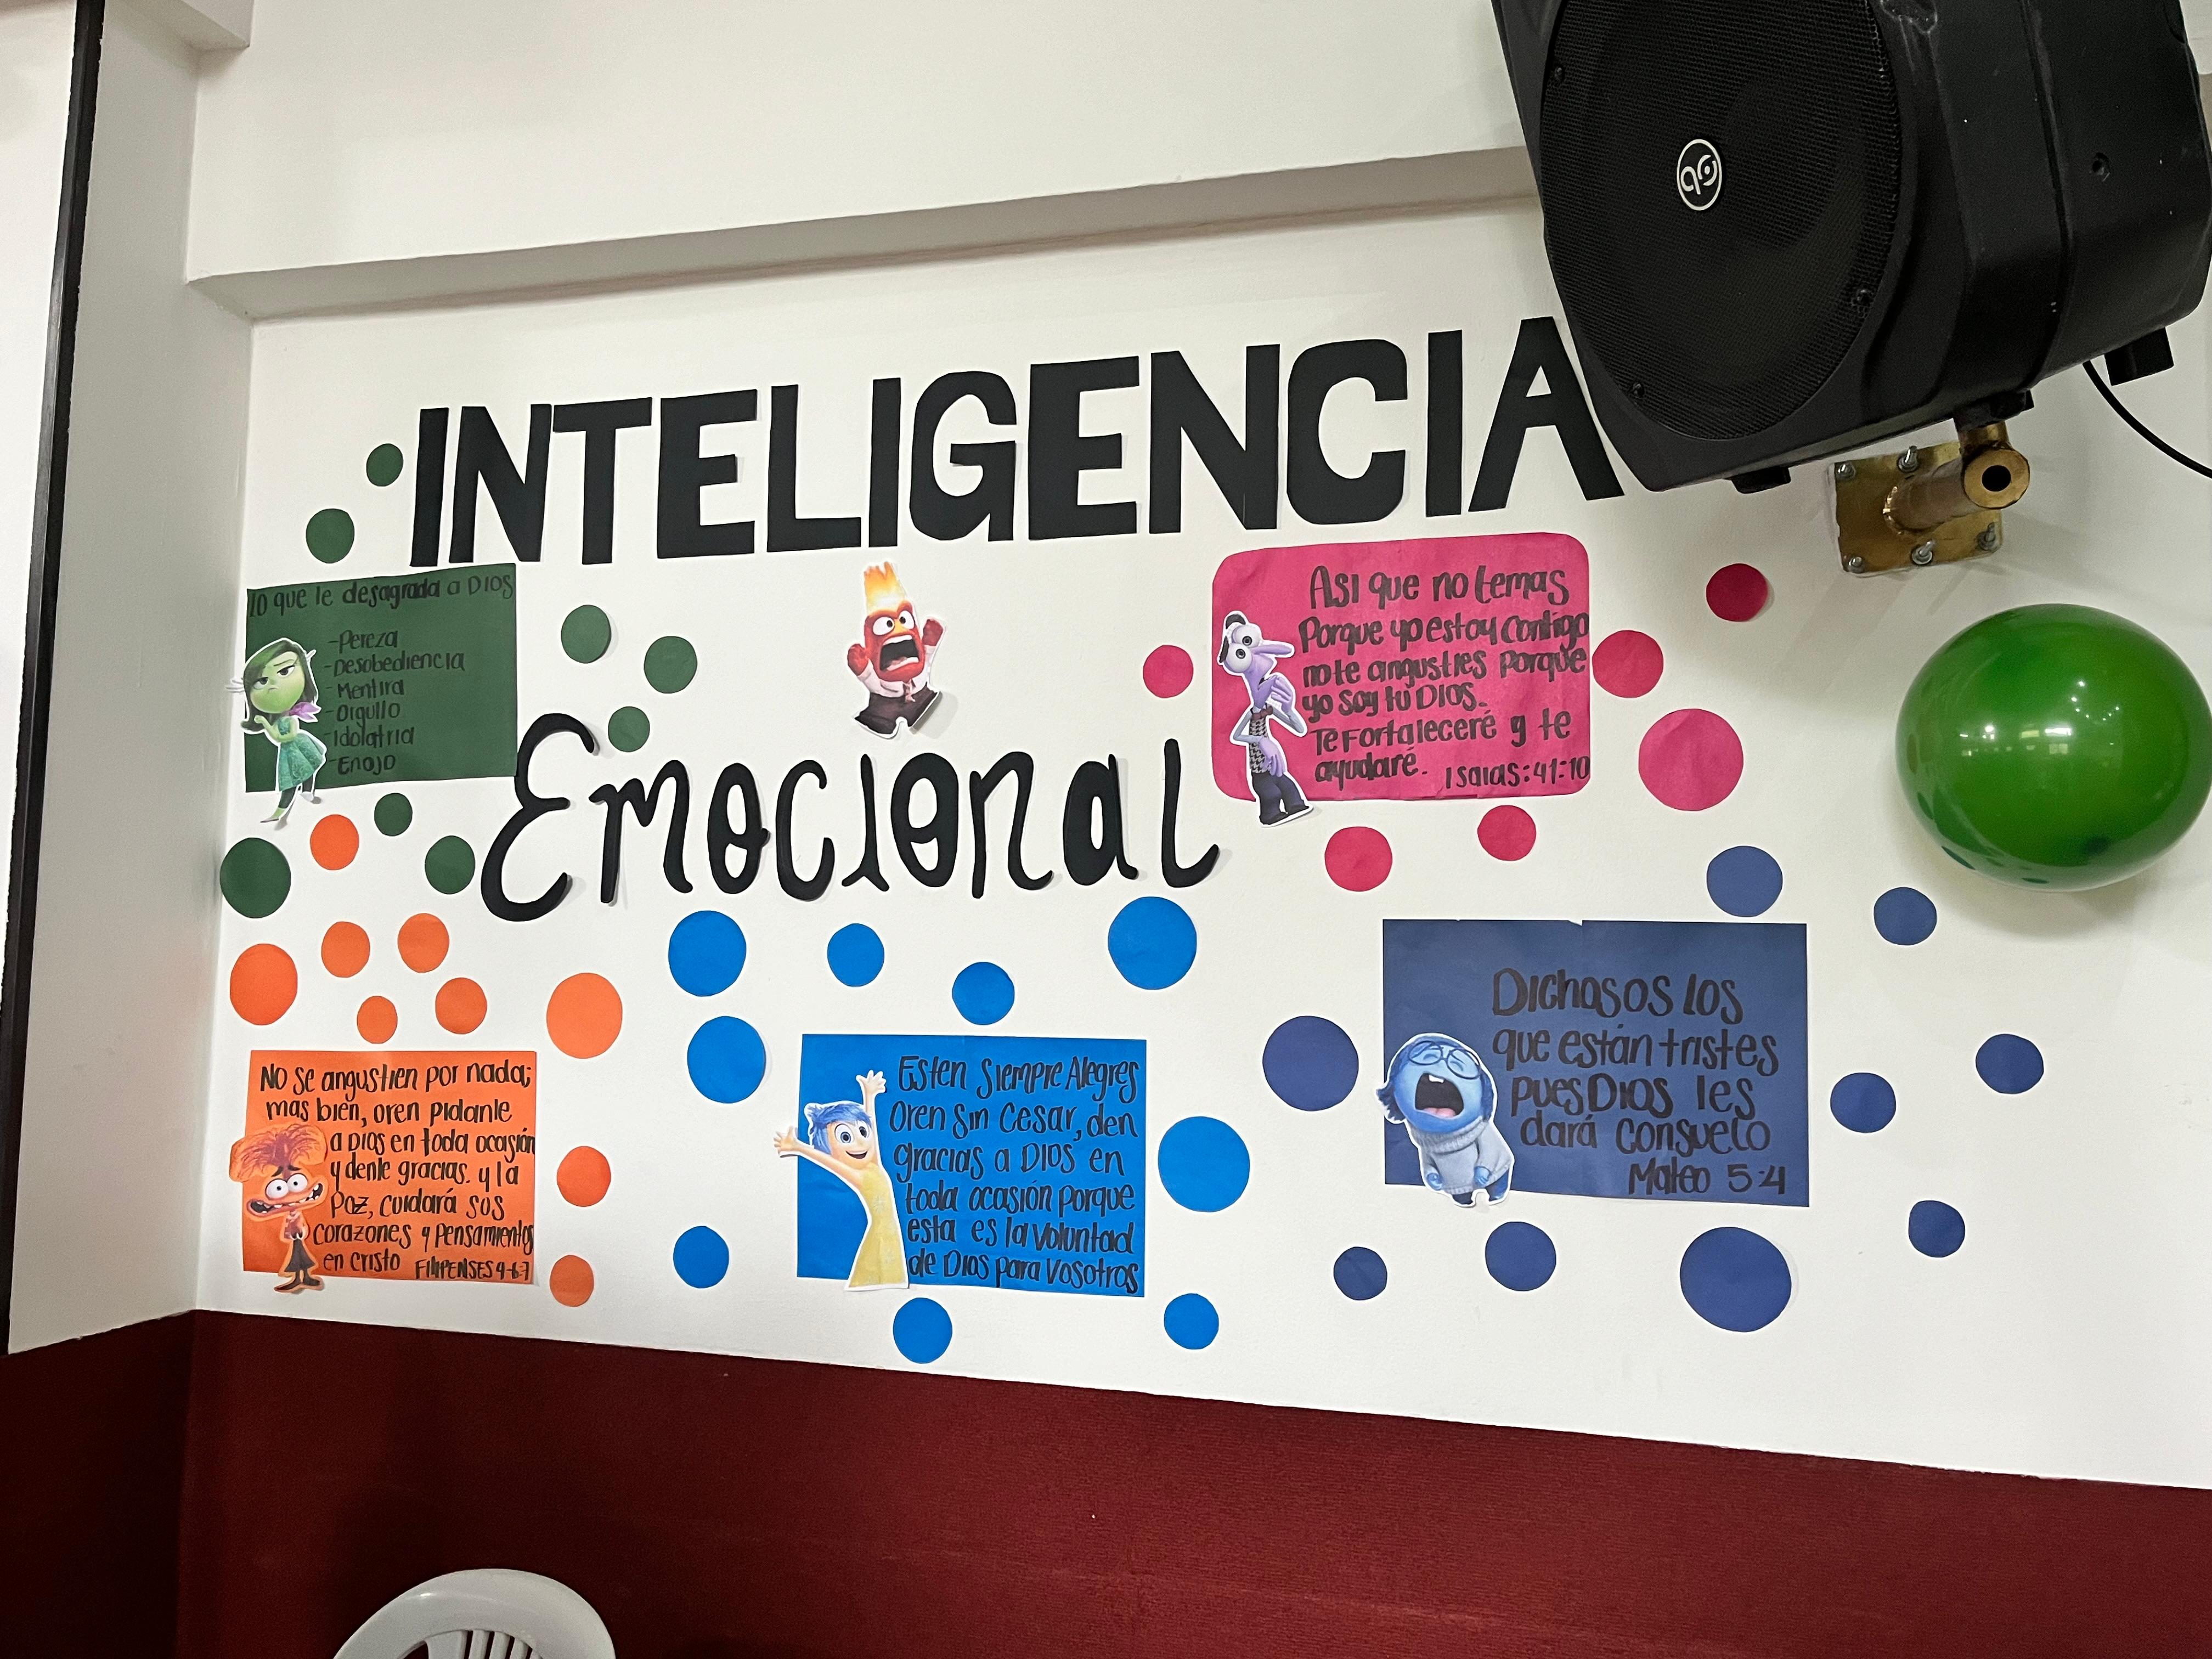 INTELIGENCIA
Emocional
lo que le desagrada a DIOS
-Pereza
-Desobediencia
-Mentira
-Orgullo
-Idolatria
-Enojo
Asi que no temas
Porque yo estoy contigo
no te angusties porque
yo soy tu DIOS.
Te Fortaleceré y te
ayudaré.
Isaias:41:10
No se angustien por nada;
mas bien, oren pidanle
a DIOS en toda ocasión
y denle gracias. y la
Paz, cuidará sus
corazones y Pensamientos
en cristo FILIPENSES 4-6:7
Esten Siempre Alegres
Oren Sin Cesar, den
gracias a DIOS en
toda ocasión porque
esta es la Voluntad
de Dios para Vosotros
Dichosos los
que están tristes
pues Dios les
dará consuelo
Mateo 5:4